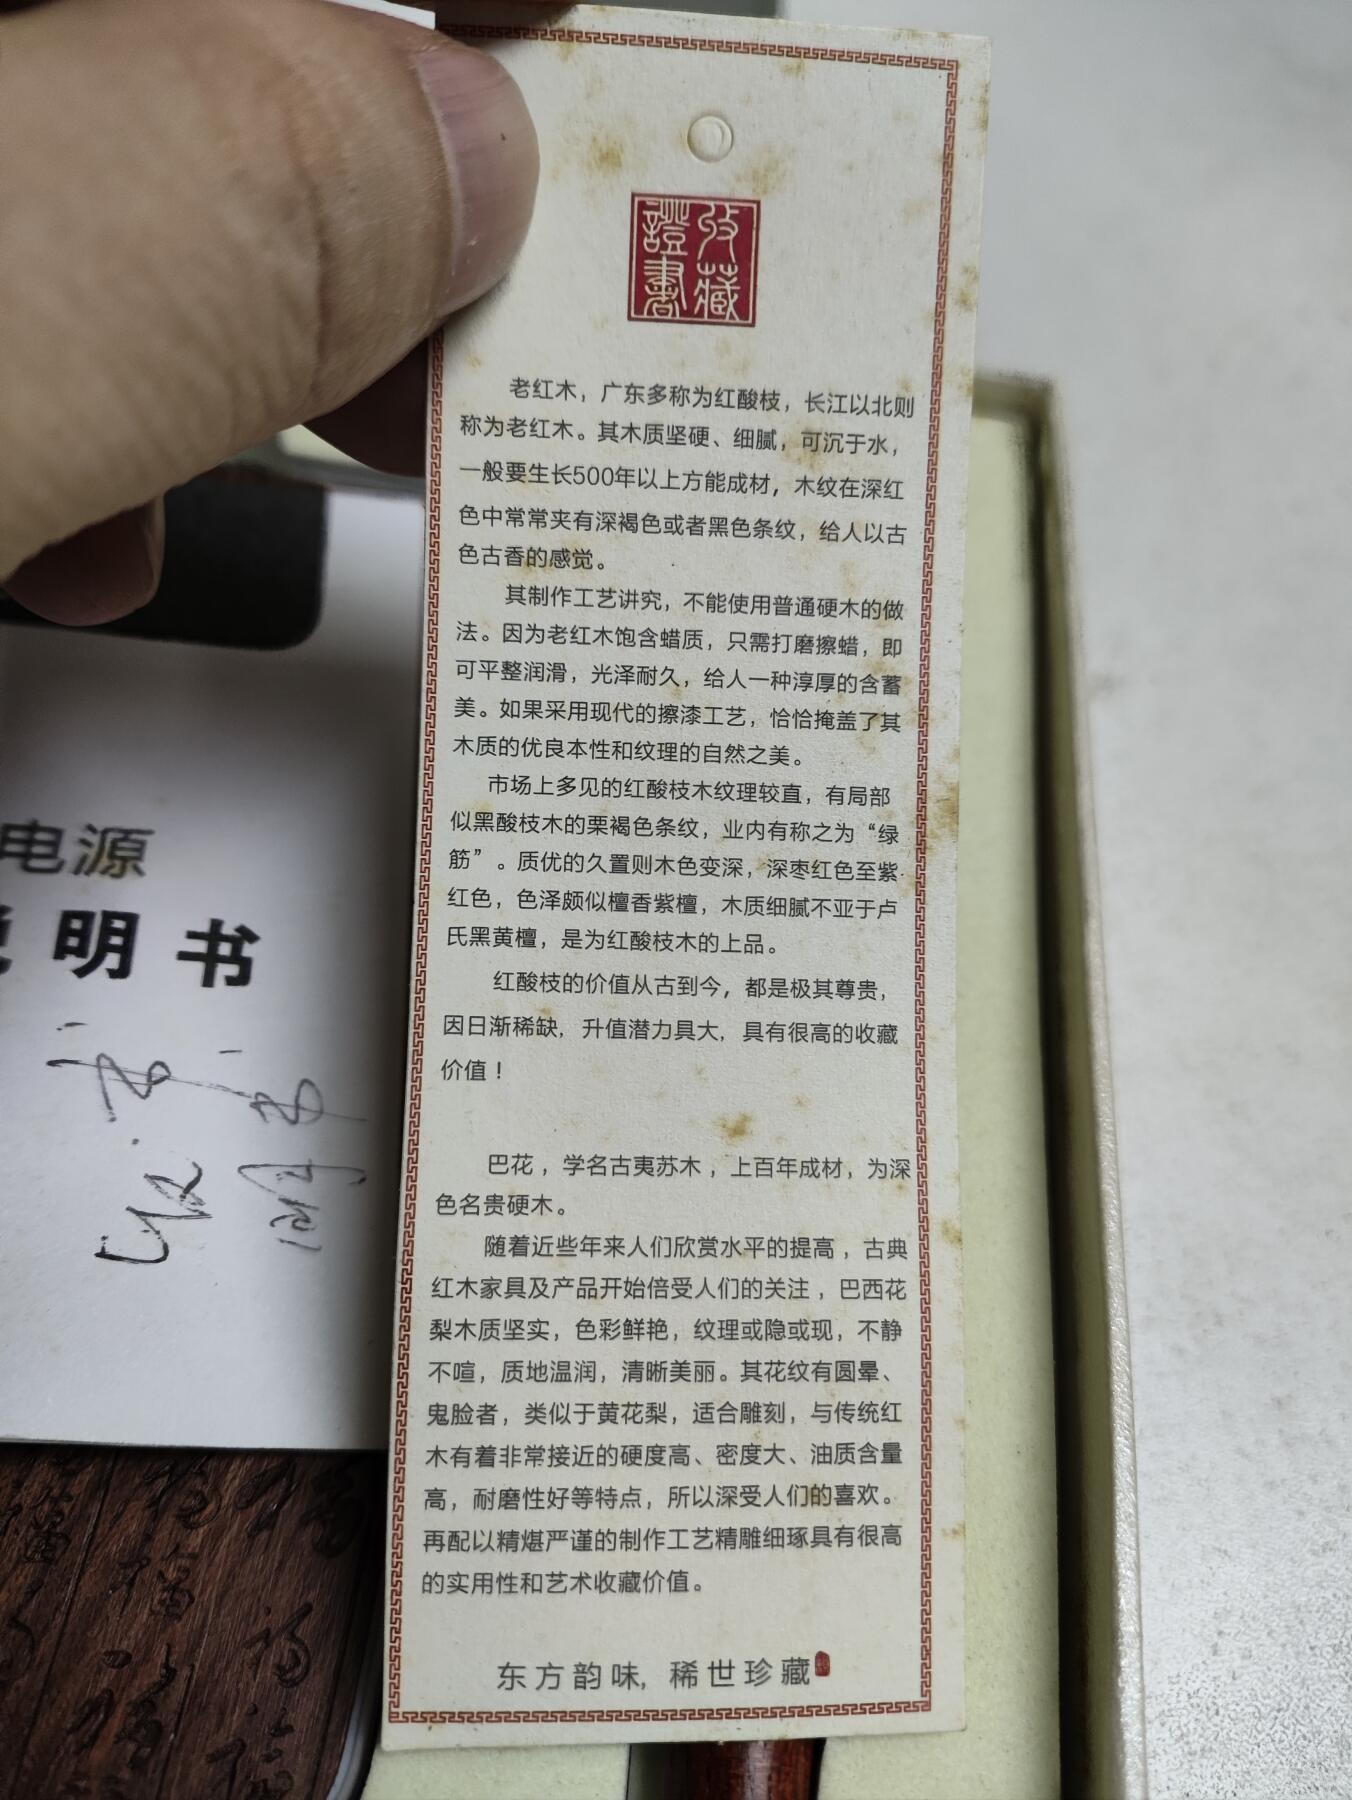 收藏
證書
老红木，广东多称为红酸枝，长江以北则
称为老红木。其木质坚硬、细腻，可沉于水，
一般要生长500年以上方能成材，木纹在深红
色中常常夹有深褐色或者黑色条纹，给人以古
色古香的感觉。
其制作工艺讲究，不能使用普通硬木的做
法。因为老红木饱含蜡质，只需打磨擦蜡，即
可平整润滑，光泽耐久，给人一种淳厚的含蓄
美。如果采用现代的擦漆工艺，恰恰掩盖了其
木质的优良本性和纹理的自然之美。
市场上多见的红酸枝木纹理较直，有局部
似黑酸枝木的栗褐色条纹，业内有称之为“绿
筋”。质优的久置则木色变深，深枣红色至紫
红色，色泽颇似檀香紫檀，木质细腻不亚于卢
氏黑黄檀，是为红酸枝木的上品。
红酸枝的价值从古到今，都是极其尊贵，
因日渐稀缺，升值潜力具大，具有很高的收藏
价值！
巴花，学名古夷苏木，上百年成材，为深
色名贵硬木。
随着近些年来人们欣赏水平的提高，古典
红木家具及产品开始倍受人们的关注，巴西花
梨木质坚实，色彩鲜艳，纹理或隐或现，不静
不喧，质地温润，清晰美丽。其花纹有圆晕、
鬼脸者，类似于黄花梨，适合雕刻，与传统红
木有着非常接近的硬度高、密度大、油质含量
高，耐磨性好等特点，所以深受人们的喜欢。
再配以精堪严谨的制作工艺精雕细琢具有很高
的实用性和艺术收藏价值。
东方韵味，稀世珍藏
电源
说明书
福
福
福